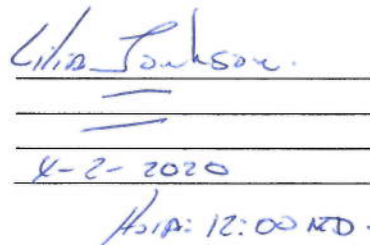 Lilia Jonkson.
4-2-2020
Hora: 12:00 MD.